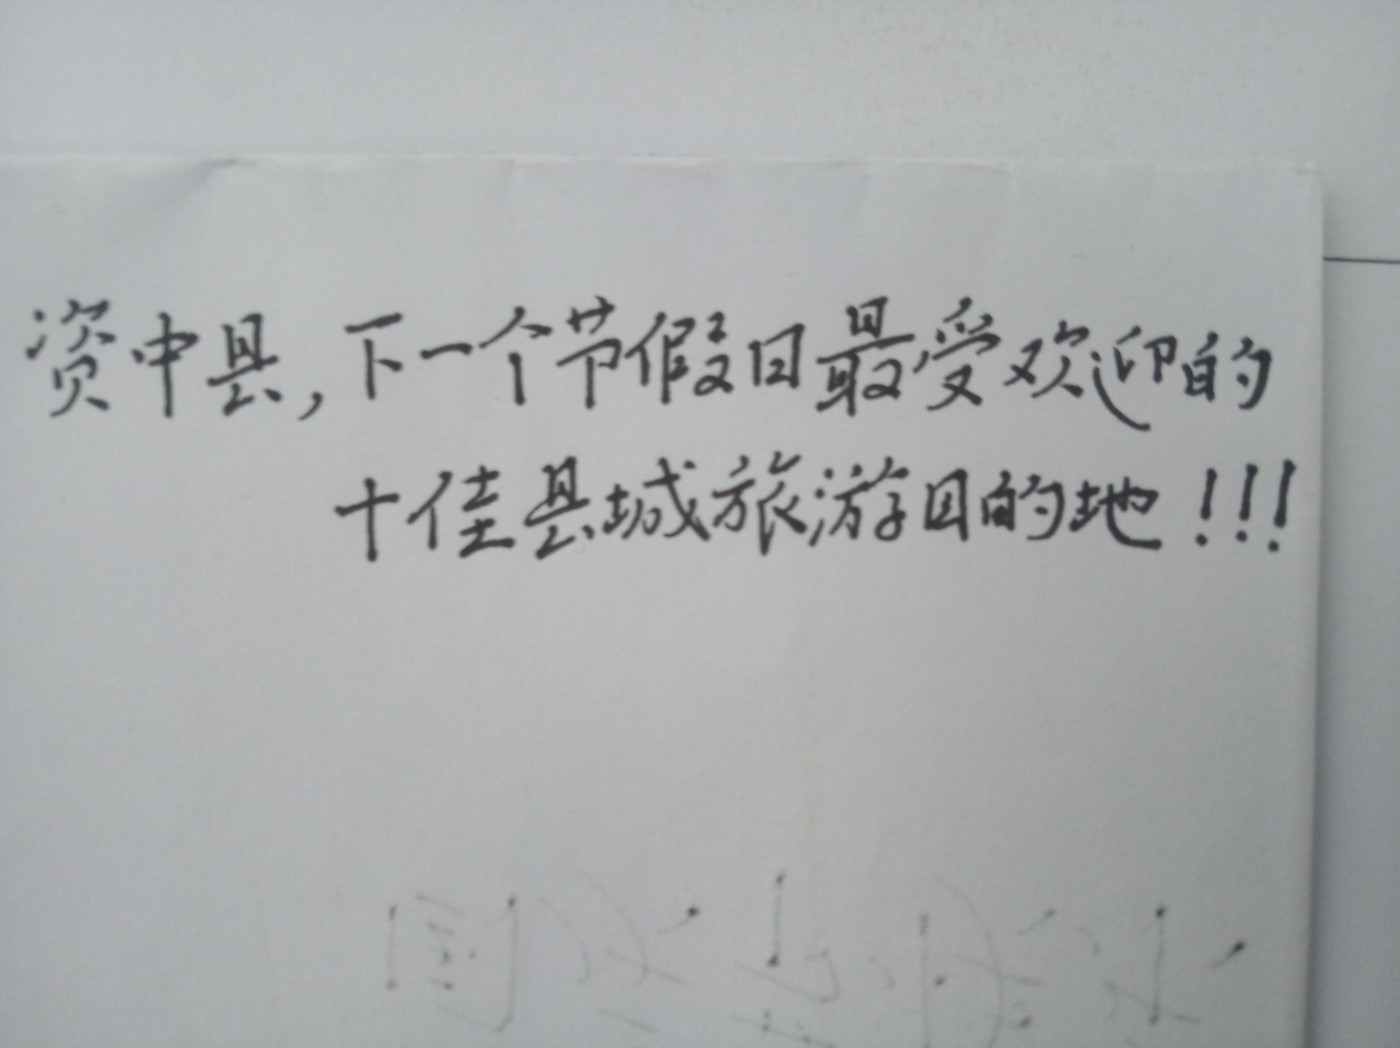 资中县,下一个节假日最受欢迎的
十佳县城旅游目的地!!!